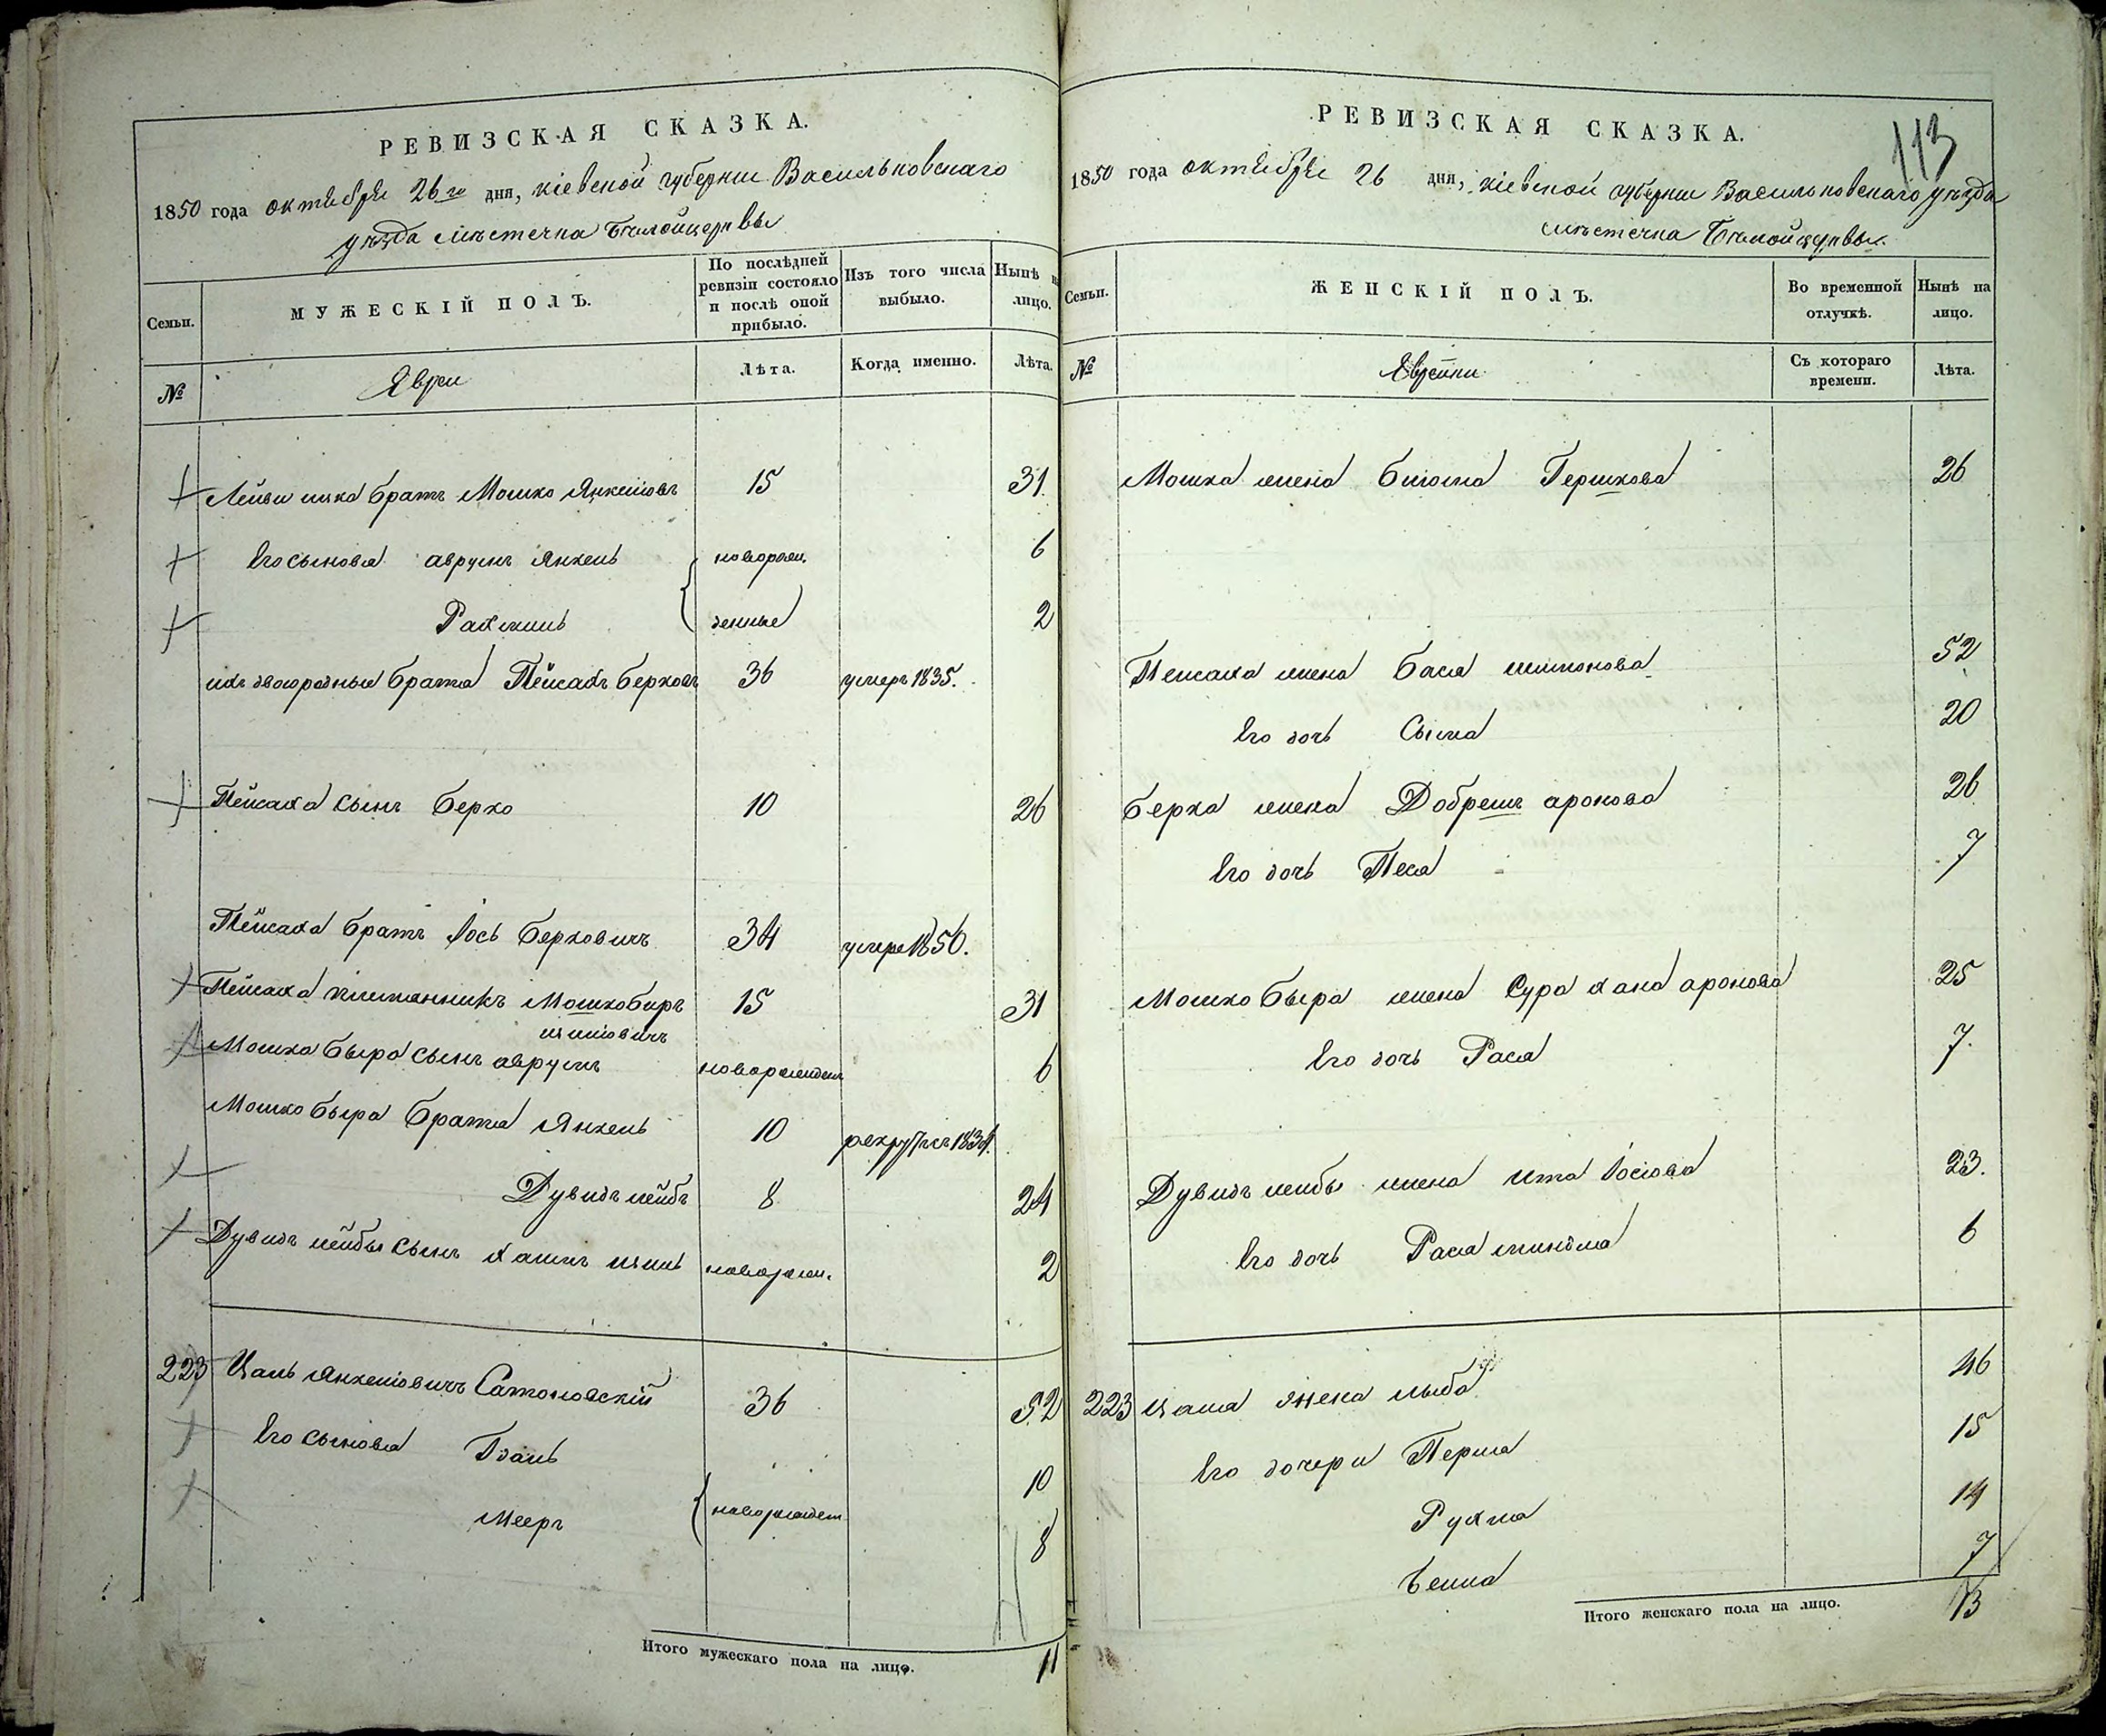 РЕВИЗСКАЯ СКАЗКА.
1850 года октября 26го дня, кіевской губерніи Васильковскаго
уѣзда мѣстечка Бѣлойцеркви
Семьи.
МУЖЕСКІЙ ПОЛЪ.
По послѣдней ревизіи состояло и послѣ оной прибыло.
Изъ того числа выбыло.
Нынѣ на лицо.
№
Явреи
Лѣта.
Когда именно.
Лѣта.
братъ Мошко Янкеліовъ 15 31
Его сыновья аврумъ Янкель новорож. 6
Рахмиль денные 2
ихъ двоюродные братья Пейсахъ берковъ 36 умеръ 1835.
Пейсаха сынъ берко 10 26
Пейсаха братъ Іось берковичъ 34 умеръ 1850.
Пейсаха племянникъ Мошко биръ 15 31
иціовичъ
Мошка быра сынъ аврумъ новорожден 6
Мошко быра братья Янкель 10 рекрут съ 1834.
Дувидъ лейбъ 8 24
Дувидъ лейбы сынъ хаимъ ициль новорож. 2
223 Цаль Янкеліовичъ Сатановскій 36 52
Его сыновья Гдаль 10
Мееръ новорожден 8
Итого мужескаго пола на лицо. 11
РЕВИЗСКАЯ СКАЗКА.
113
1850 года октября 26 дня, кіевской губерніи Васильковскаго уѣзда
мѣстечка Бѣлойцеркви.
Семьи.
ЖЕНСКІЙ ПОЛЪ.
Во временной отлучкѣ.
Нынѣ на лицо.
№
Яврейки
Съ котораго времени.
Лѣта.
Мошка жена Гершкова 26
Пейсаха жена бася шимонова 52
Его дочь Сыма 20
берка жена Добрешъ аронова 26
Его дочь Песя 7
Мошко быра жена Сура хана аронова 25
Его дочь Рася 7.
Дувидъ лейбы жена ита Іосіова 23.
Его дочь Рася миндля 6
223 Цаля жена лыба 46
Его дочери Перля 15
Рухля 14
бейла 7
Итого женскаго пола на лицо. 13